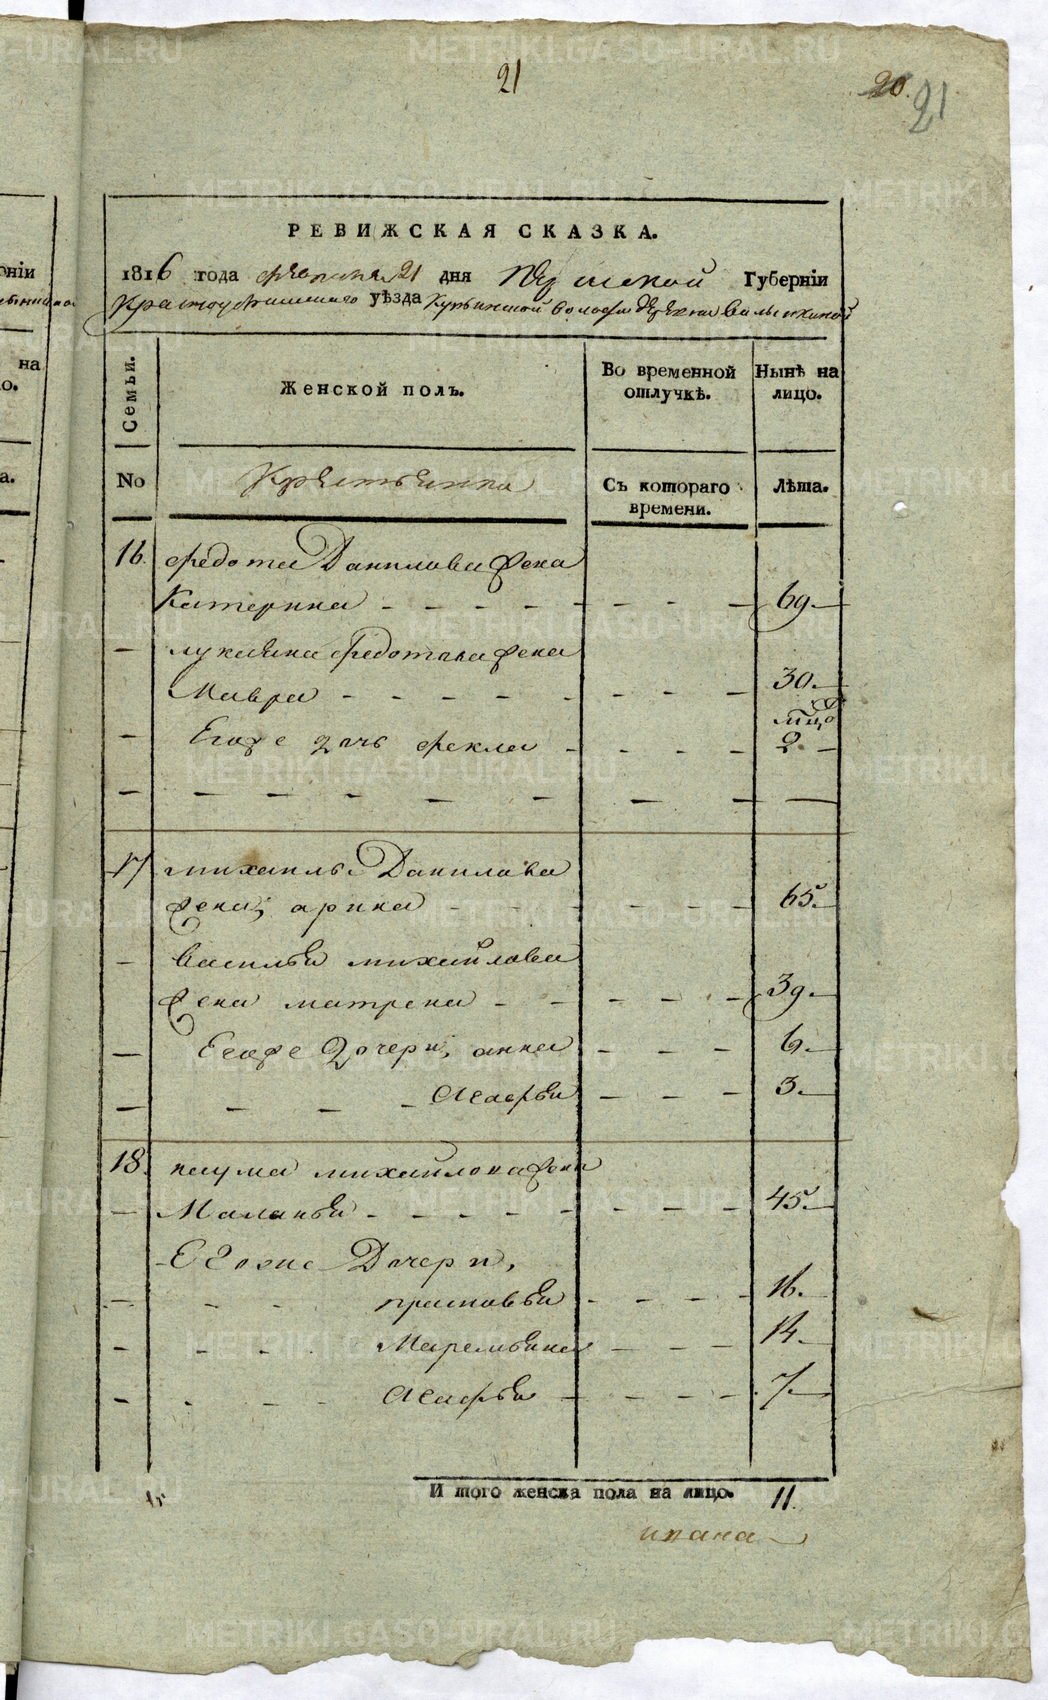 21
20. 21
РЕВИЖСКАЯ СКАЗКА.
1816 года февраля 21 дня Пермской Губерніи
Красноуфимскаго уѣзда волости деревни
Семьи.
Женской полъ.
Во временной отлучкѣ.
Нынѣ на лицо.
No
Крестьянка
Съ котораго времени.
Лѣта.
16. Федота Данилова жена
Катерина - - - - - - - - 69.
лукояна Федотова жена
Мавра - - - - - - - - 30.
мцо
Егоже дочь фекла - - - - 2
17 михаилы Данилова
жена; арина - - - - - - 65.
василья михайлова
жена матрена - - - - - 39
Егоже Дочери, анна - - - 6.
Агафья - - - 3.
18. наума михайлова жена
Маланья - - - - - - - - 45.
Егоже Дочери,
прасковья - - - - 16.
Маремьяна - - - 14.
Агафья - - - - 7.
И того женска пола на лицо. 11.
ивана
оніи
на
о.
а.
METRIKI.GASO-URAL.RU